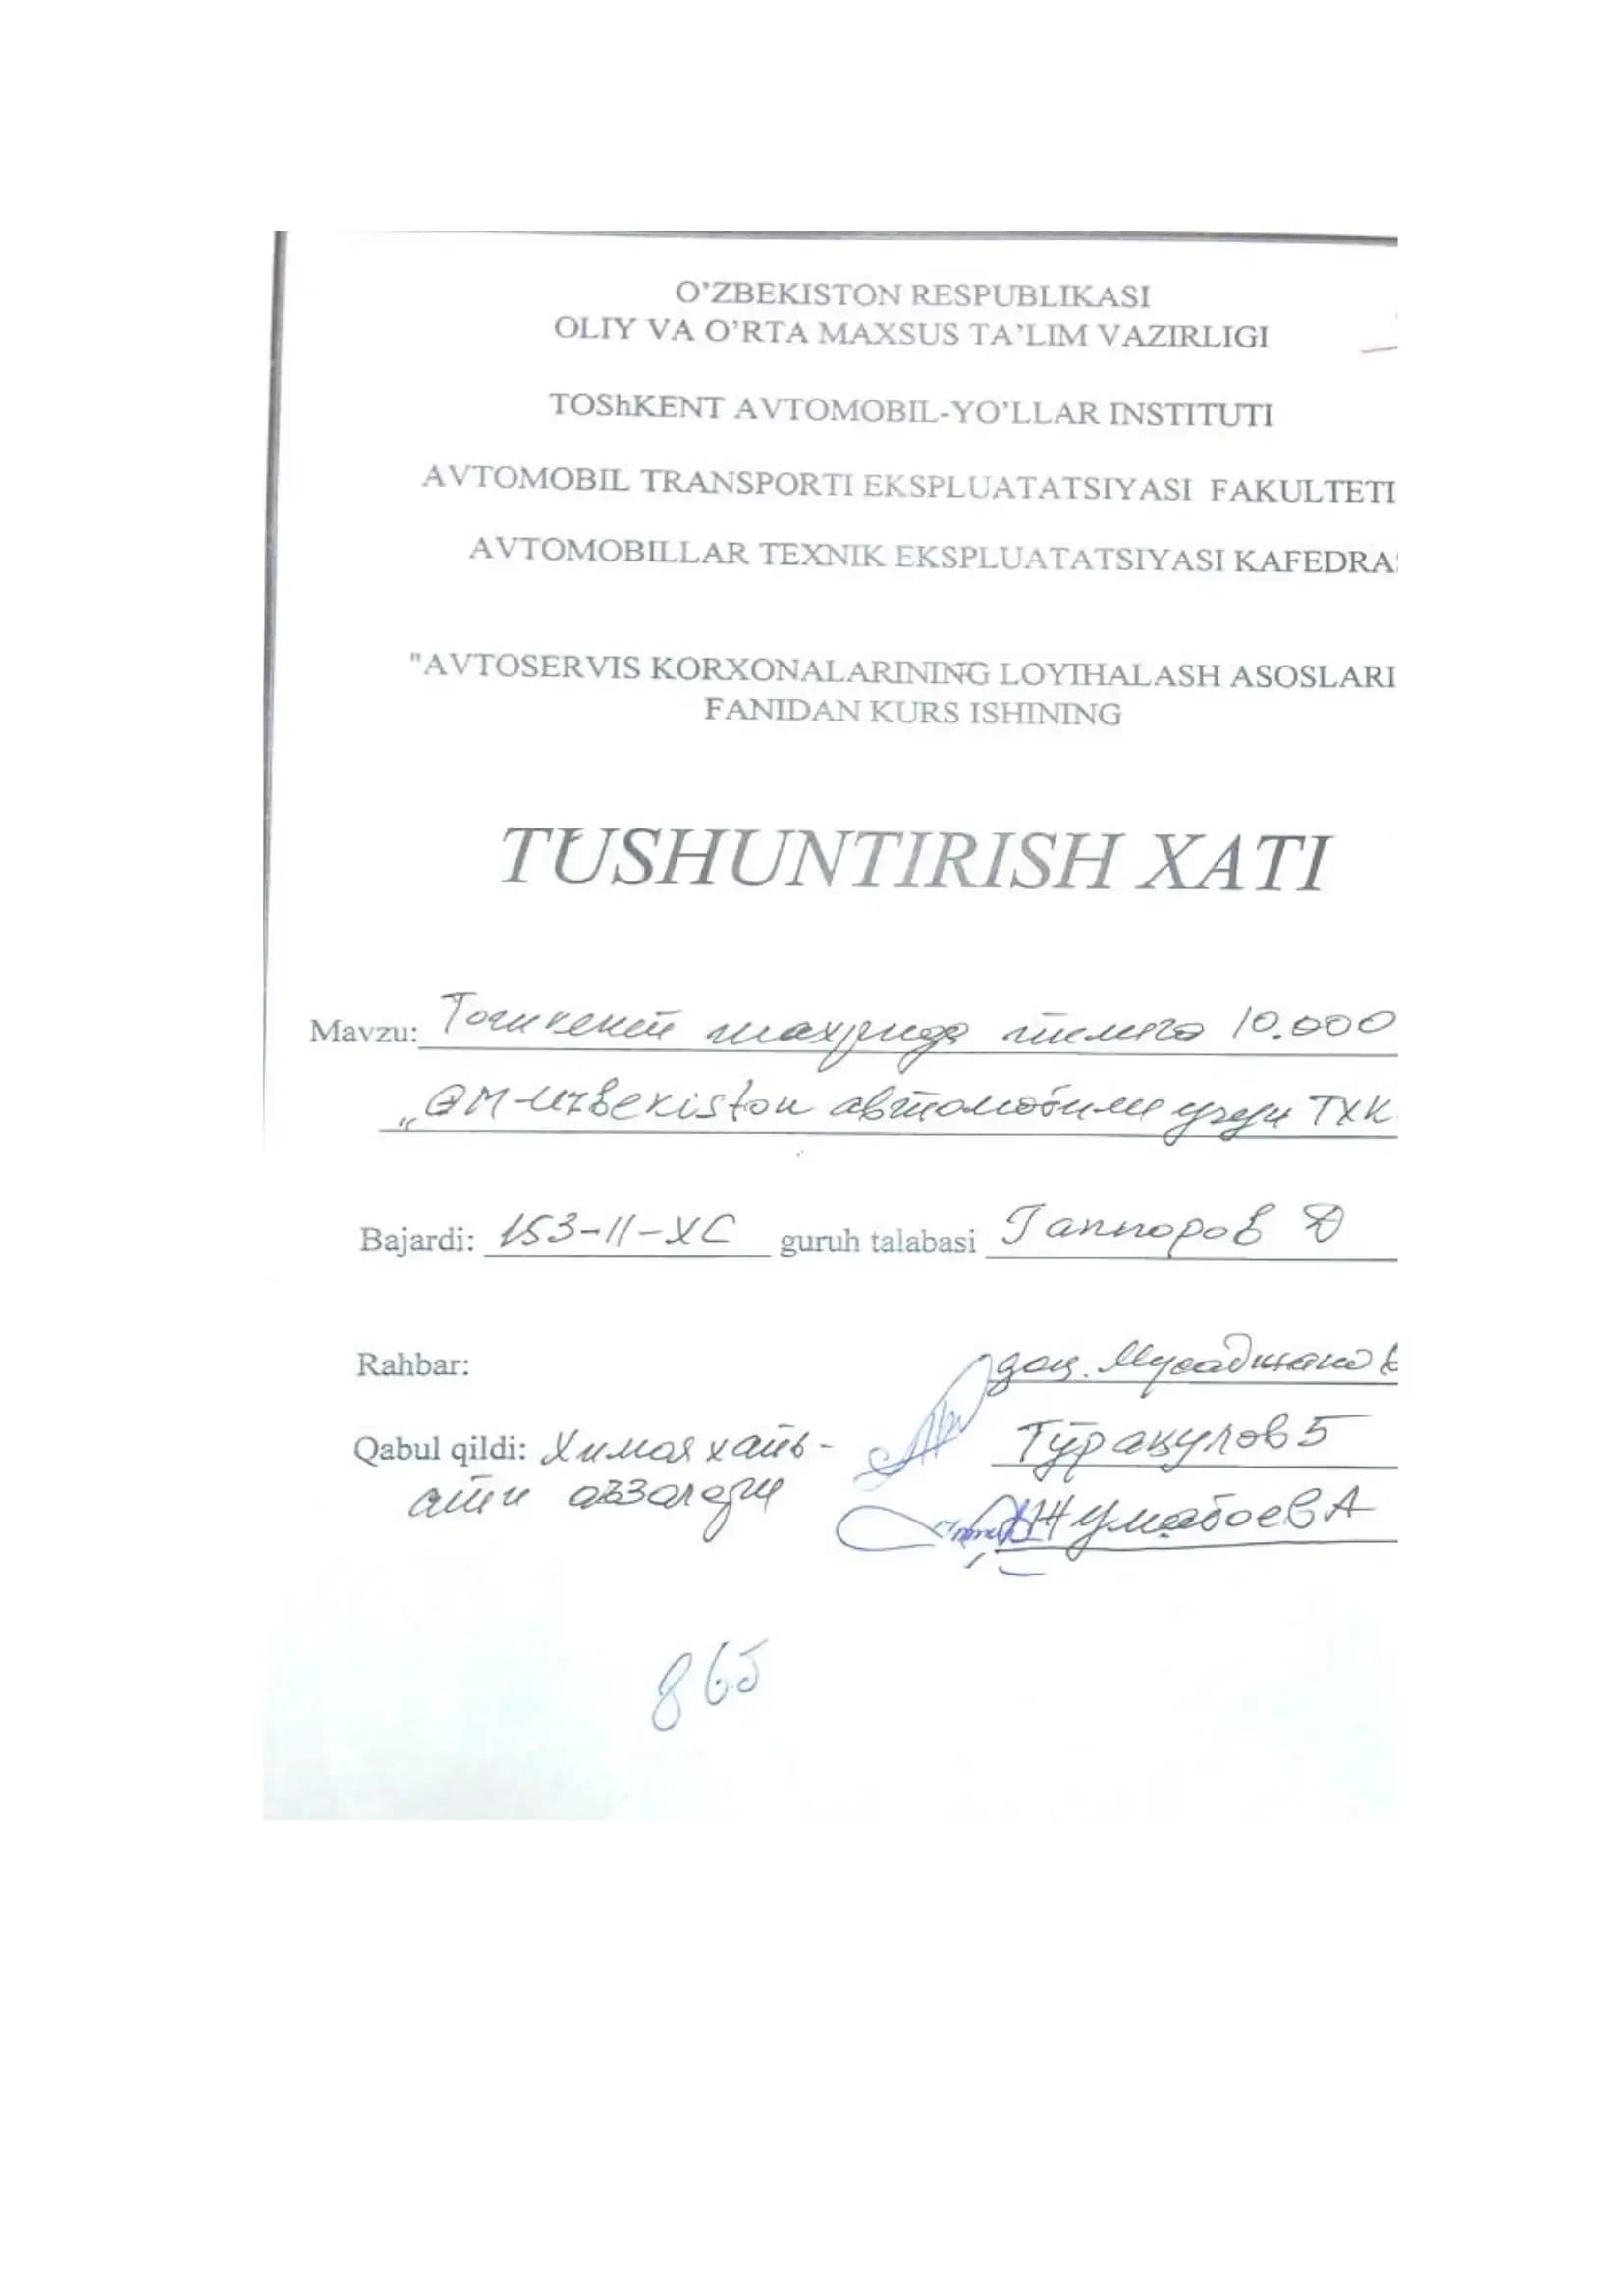 O'ZBEKISTON RESPUBLIKASI
OLIY VA O'RTA MAXSUS TA'LIM VAZIRLIGI
TOShKENT AVTOMOBIL-YO'LLAR INSTITUTI
AVTOMOBIL TRANSPORTI EKSPLUATATSIYASI FAKULTETI
AVTOMOBILLAR TEXNIK EKSPLUATATSIYASI KAFEDRA
"AVTOSERVIS KORXONALARINING LOYIHALASH ASOSLARI
FANIDAN KURS ISHINING
TUSHUNTIRISH XATI
Mavzu: Тошкент шахрида 10.000
„GM-Uzbekiston автомобили учун ТХК
Bajardi: 153-11-ХС guruh talabasi Гаппоров Д
Rahbar: доц. Мусаджанов
Qabul qildi: Химоя хайъ- Тўракулов Б
ати аъзолари Жумабоев А
86б